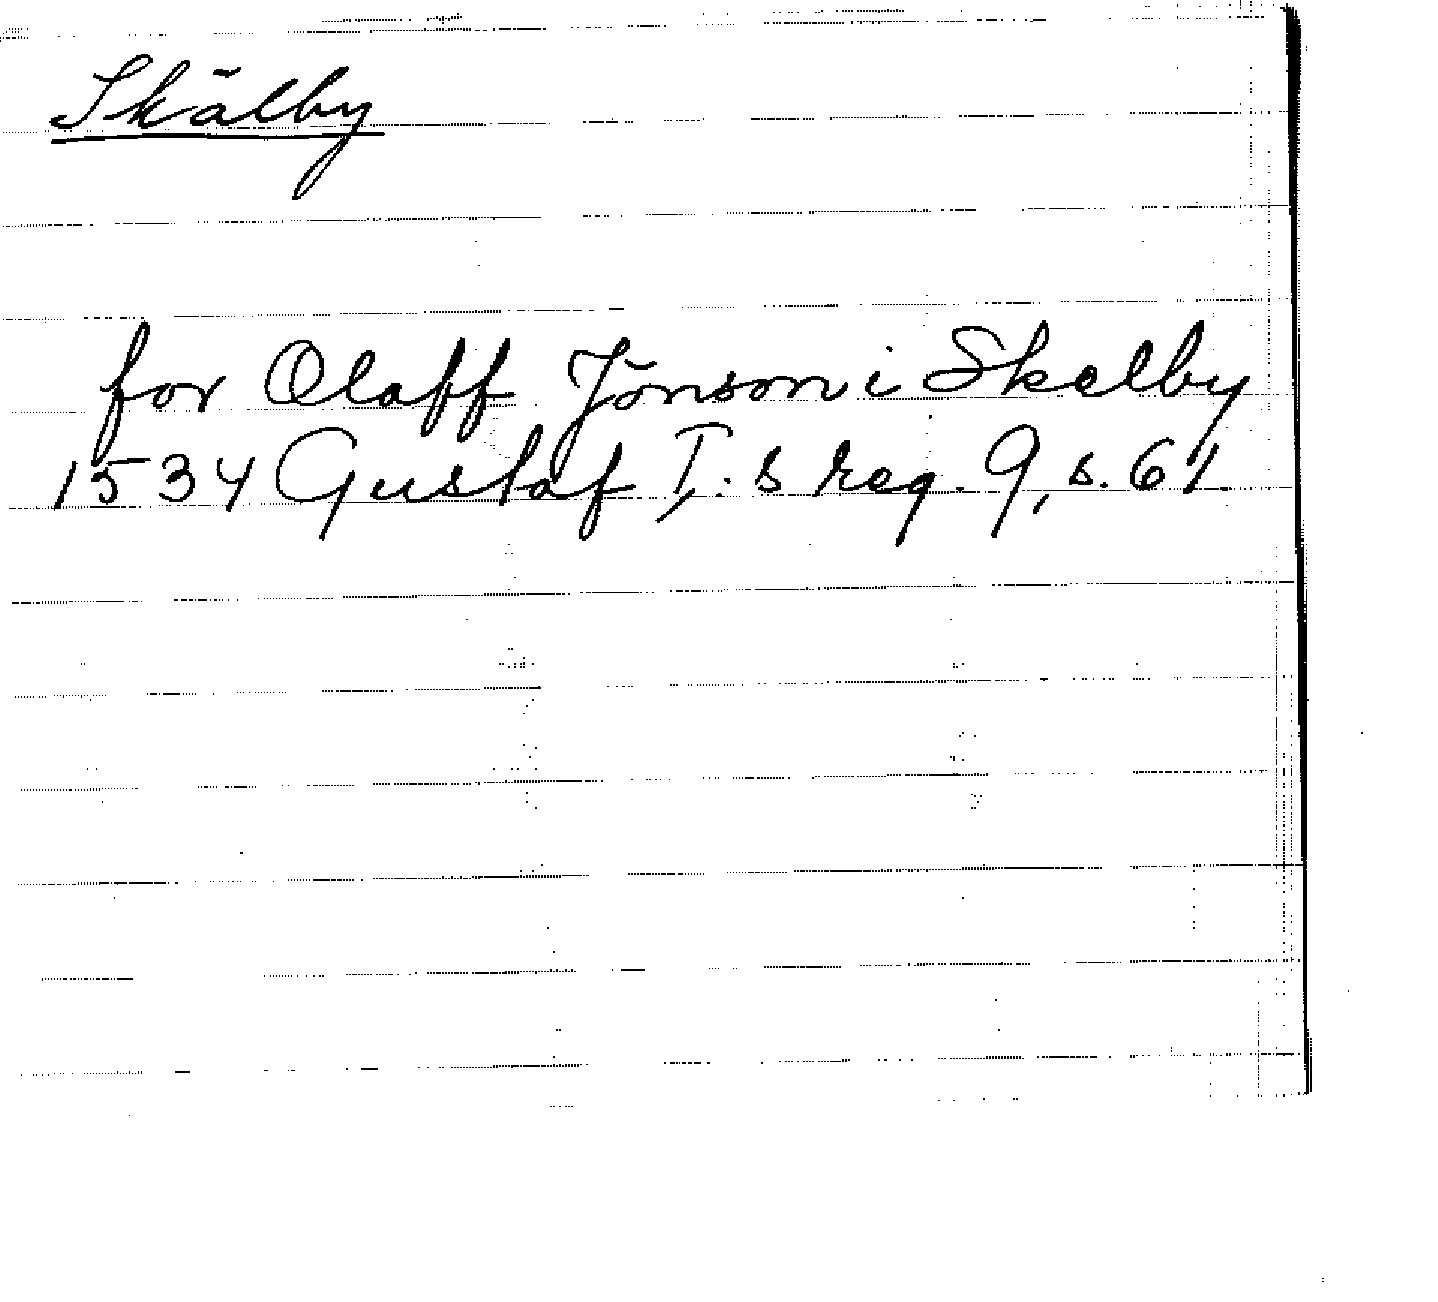 Skälby
for Olaff Jönson i Skelby
1534 Gustaf I:s reg. 9, s. 61